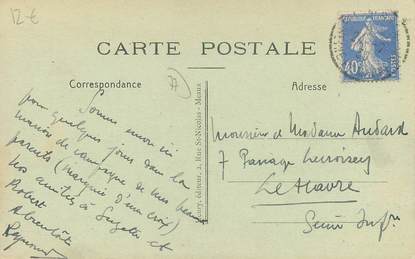 12 €
CARTE POSTALE
RÉPUBLIQUE FRANÇAISE
40c
POSTES
Correspondance
Adresse
77
pour quelques jours dans la
maison de campagne de mes beaux
parents (marquée d'une croix)
nos amitiés à Suzette et
Robert
A bientôt
Raymond
éditeur, 2, Rue St-Nicolas - Meaux
Monsieur et Madame Audard
7 Passage
Le Havre
Seine Infre